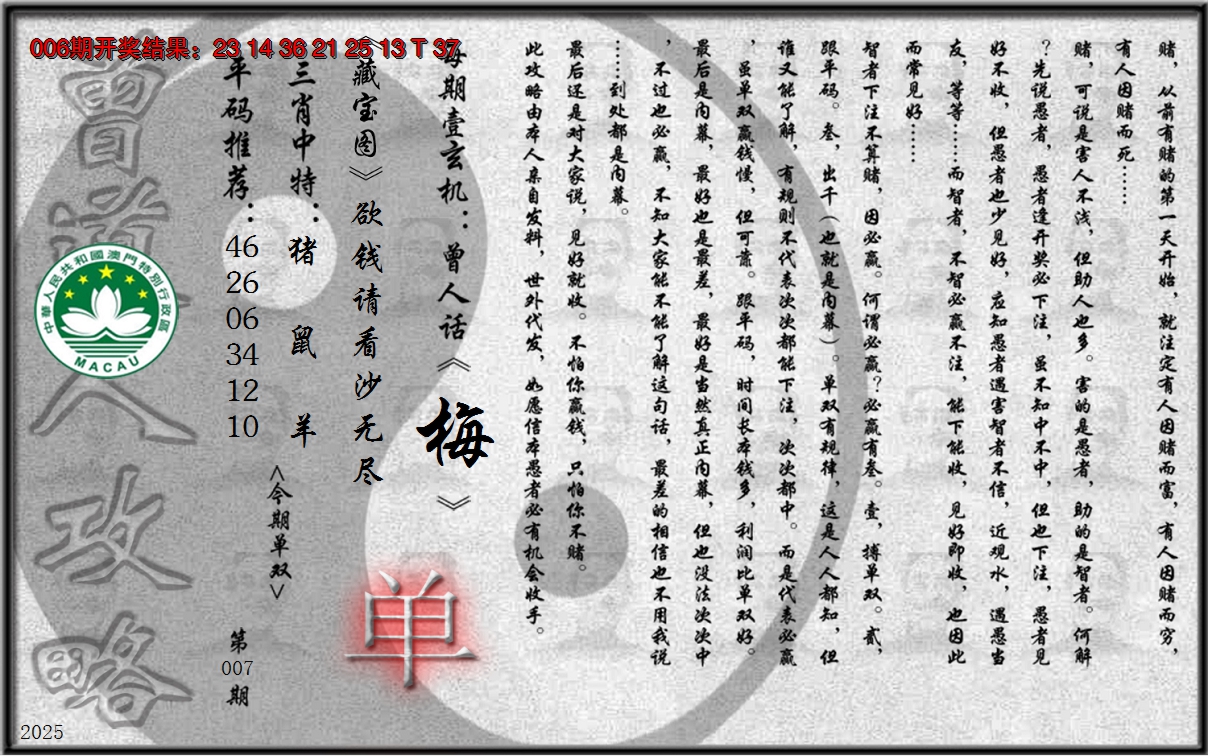 006期开奖结果：23 14 36 21 25 13 T 37
赌，从前有赌的第一天开始，就注定有人因赌而富，有人因赌而穷，
有人因赌而死……
赌，可说是害人不浅，但助人也多。害的是愚者，助的是智者。何解
？先说愚者，愚者逢开奖必下注，虽不知中不中，但也下注，愚者见
好不收，但愚者也少见好，应知愚者遇害智者不信，近观水，遇愚当
友，等等……而智者，不智必赢不注，能下能收，见好即收，也因此
而常见好……
智者下注不算赌，因必赢。何谓必赢？必赢有叁。壹，搏单双。贰，
跟平码。叁，出千（也就是内幕）。单双有规律，这是人人都知，但
谁又能了解，有规则不代表次次都能下注，次次都中。而是代表必赢
，虽单双赢钱慢，但可靠。跟平码，时间长本钱多，利润比单双好。
最后是内幕，最好也是最差，最好是当然真正内幕，但也没法次次中
，不过也必赢，不知大家能不能了解这句话，最差的相信也不用我说
……到处都是内幕。
最后还是对大家说，见好就收。不怕你赢钱，只怕你不赌。
此攻略由本人亲自发料，世外代发，如愿信本愚者必有机会收手。
每期壹玄机：曾人话《梅》
《藏宝图》欲钱请看沙无尽
单
三肖中特：猪 鼠 羊
<今期单双>
平码推荐：46 26 06 34 12 10
第007期
曾道人攻略
中華人民共和國澳門特別行政區
MACAU
2025